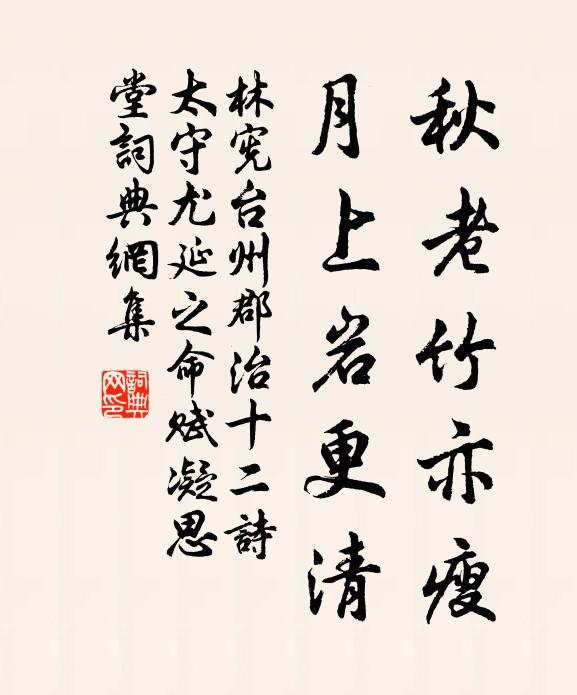 秋老竹亦瘦
月上岩更清
林宪台州郡治十二詩
太守尤延之命赋凝思
堂詞典網集
詞典网印